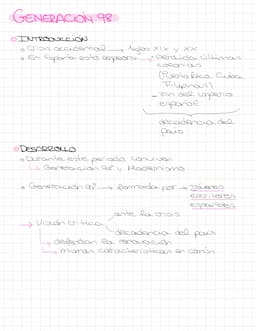 GENERACIÓN 98
INTRODUCCIÓN
Crisis occidental → siglos XIX y XX
En España esta época → - Pérdida últimas
colonias
(Puerto Rico, Cuba,
Filipinas)
- Fin del imperio
español
decadencia del
país
DESARROLLO
Durante este periodo conviven
→ Generación 98 y Modernismo
Generación 98 → formada por → jóvenes
escritores
españoles
→ Visión crítica
ante la crisis
decadencia del país
→ defendían la renovación
→ mismas características en común